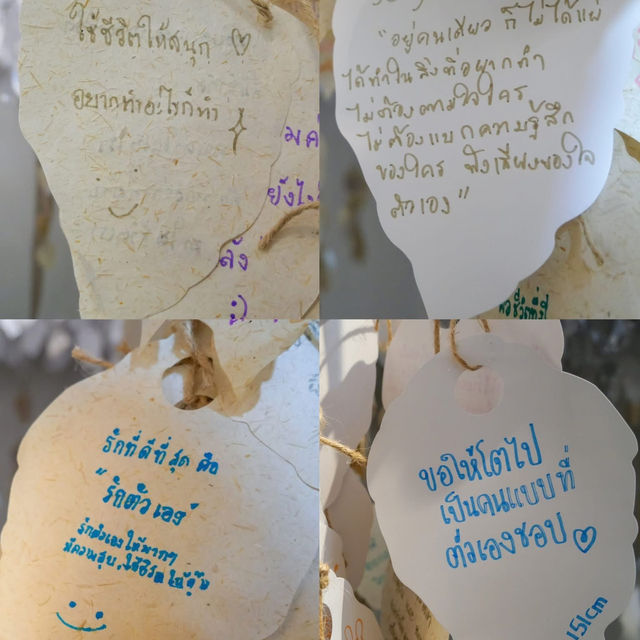 ใช้ชีวิตให้สนุก ♡
อยากทำอะไรก็ทำ
ยังไง
ลัง
:)
"อยู่คนเดียว ก็ไม่ได้แย่
ได้ทำในสิ่งที่อยากทำ
ไม่ต้องตามใจใคร
ไม่ต้องแบกความรู้สึก
ของใคร ฟังเสียงของใจ
ตัวเอง"
รักที่ดีที่สุด คือ
"รักตัวเอง"
รักตัวเองให้มากๆ
มีความสุข, ใช้ชีวิต
ขอให้โตไป
เป็นคนแบบที่
ตัวเองชอบ ♡
151cm